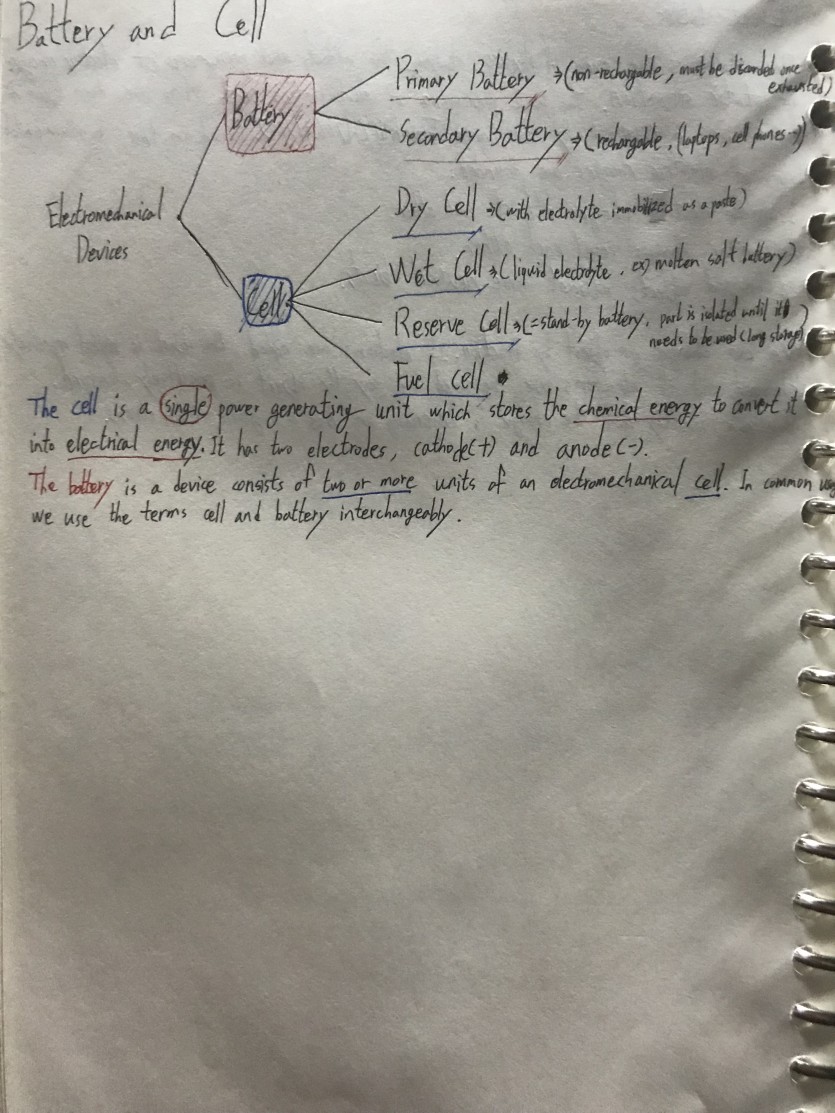 Battery and Cell
Battery
Primary Battery ⇒ (non-rechargable, must be discarded once
exhausted)
Secondary Battery ⇒ (rechargable, (laptops, cell phones…))
Electromechanical
Devices
Cell
Dry Cell ⇒ (with electrolyte immobilized as a paste)
Wet Cell ⇒ (liquid electrolyte, ex) molten salt battery)
Reserve Cell ⇒ (=stand-by battery, part is isolated until it
needs to be used (long storage)
Fuel cell
The cell is a single power generating unit which stores the chemical energy to convert it
into electrical energy. It has two electrodes, cathode(+) and anode(-).
The battery is a device consists of two or more units of an electromechanical cell. In common
we use the terms cell and battery interchangeably.